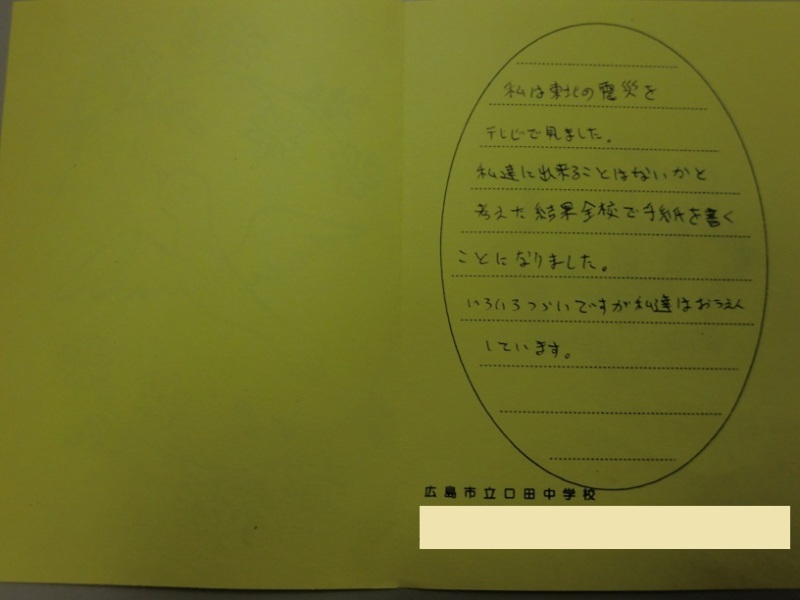 私は東北の震災を
テレビで見ました。
私達に出来ることはないかと
考えた結果全校で手紙を書く
ことになりました。
いろいろつらいですが私達はおうえん
しています。
広島市立口田中学校